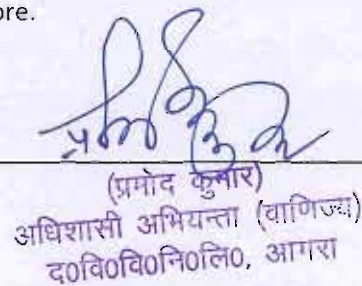 ore.
(प्रमोद कुमार)
अधिशासी अभियन्ता (वाणिज्य)
द0वि0वि0नि0लि0, आगरा